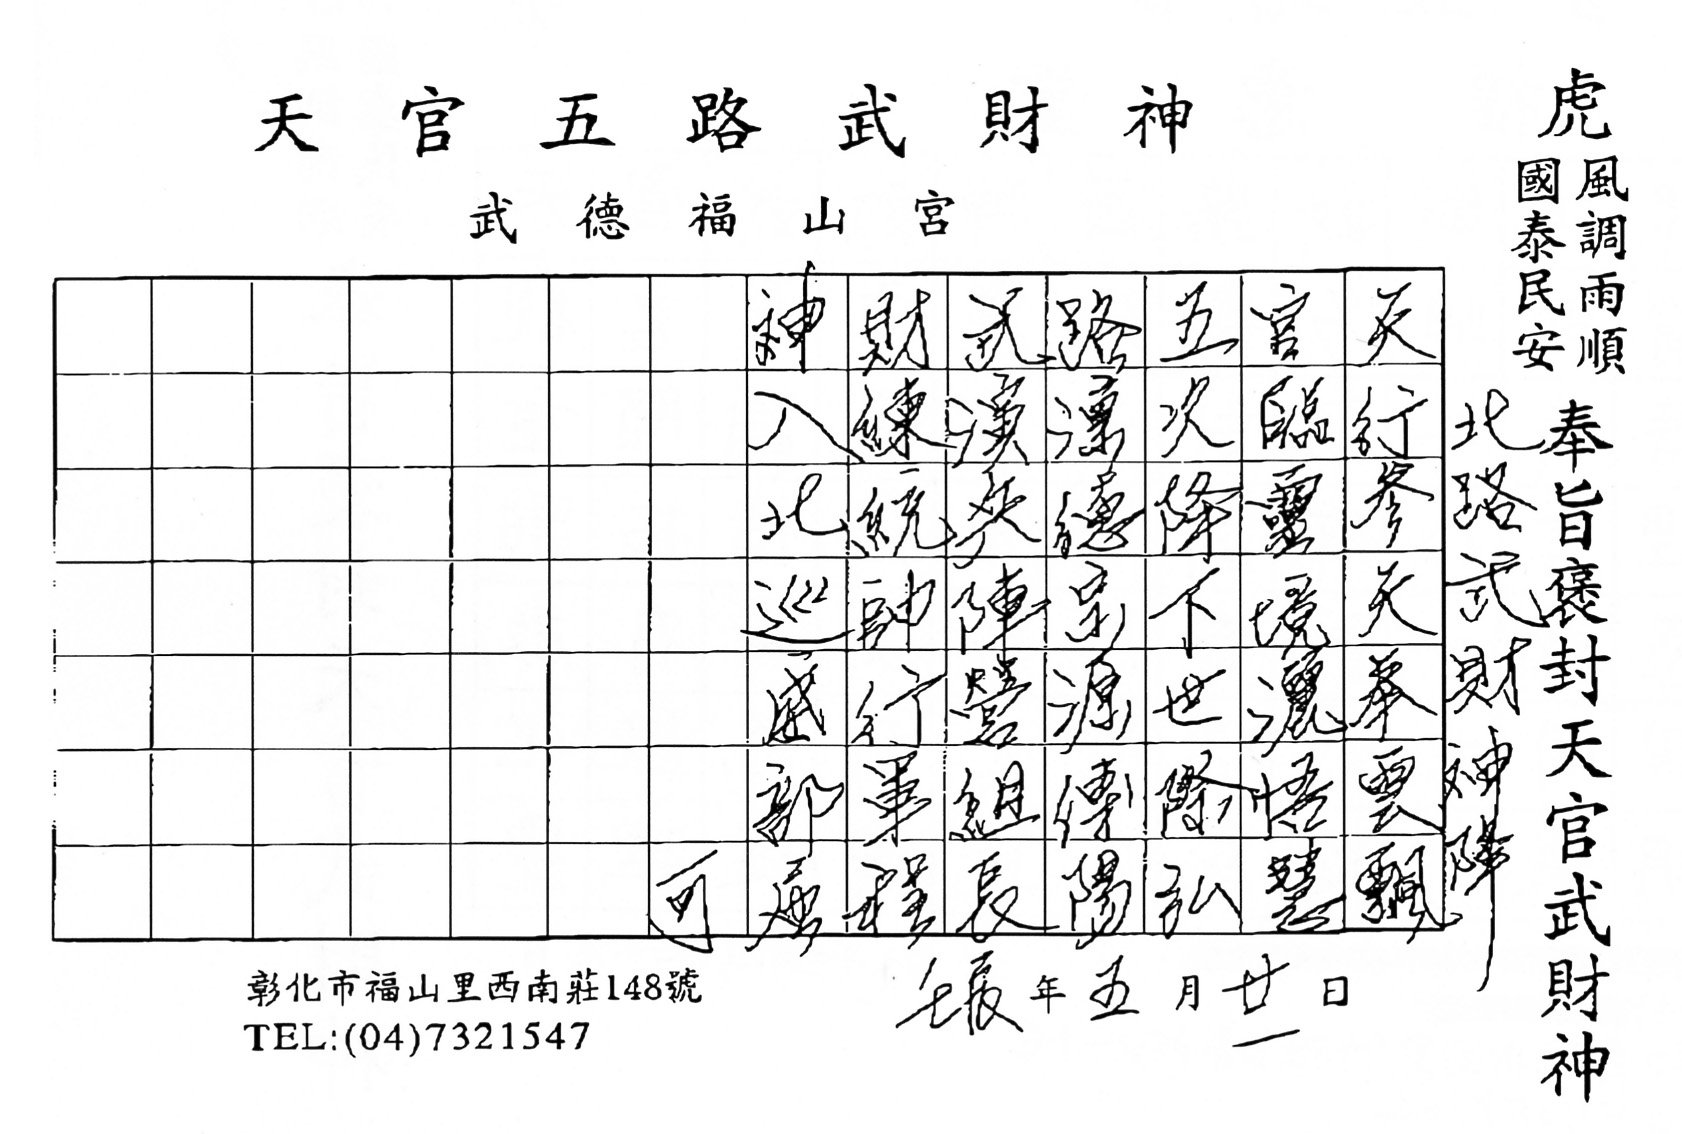 天官五路武財神
武德福山宮
虎
風調雨順
國泰民安
奉旨褒封天官武財神
北路武財神降
天行參天奉雲飄
官臨靈境灑悟慧
五降下世際弘
路宗源傳陽
武演兵陣營組長
財練統帥行軍程
神入北巡部屬
可
壬辰年五月廿一日
彰化市福山里西南莊148號
TEL:(04)7321547